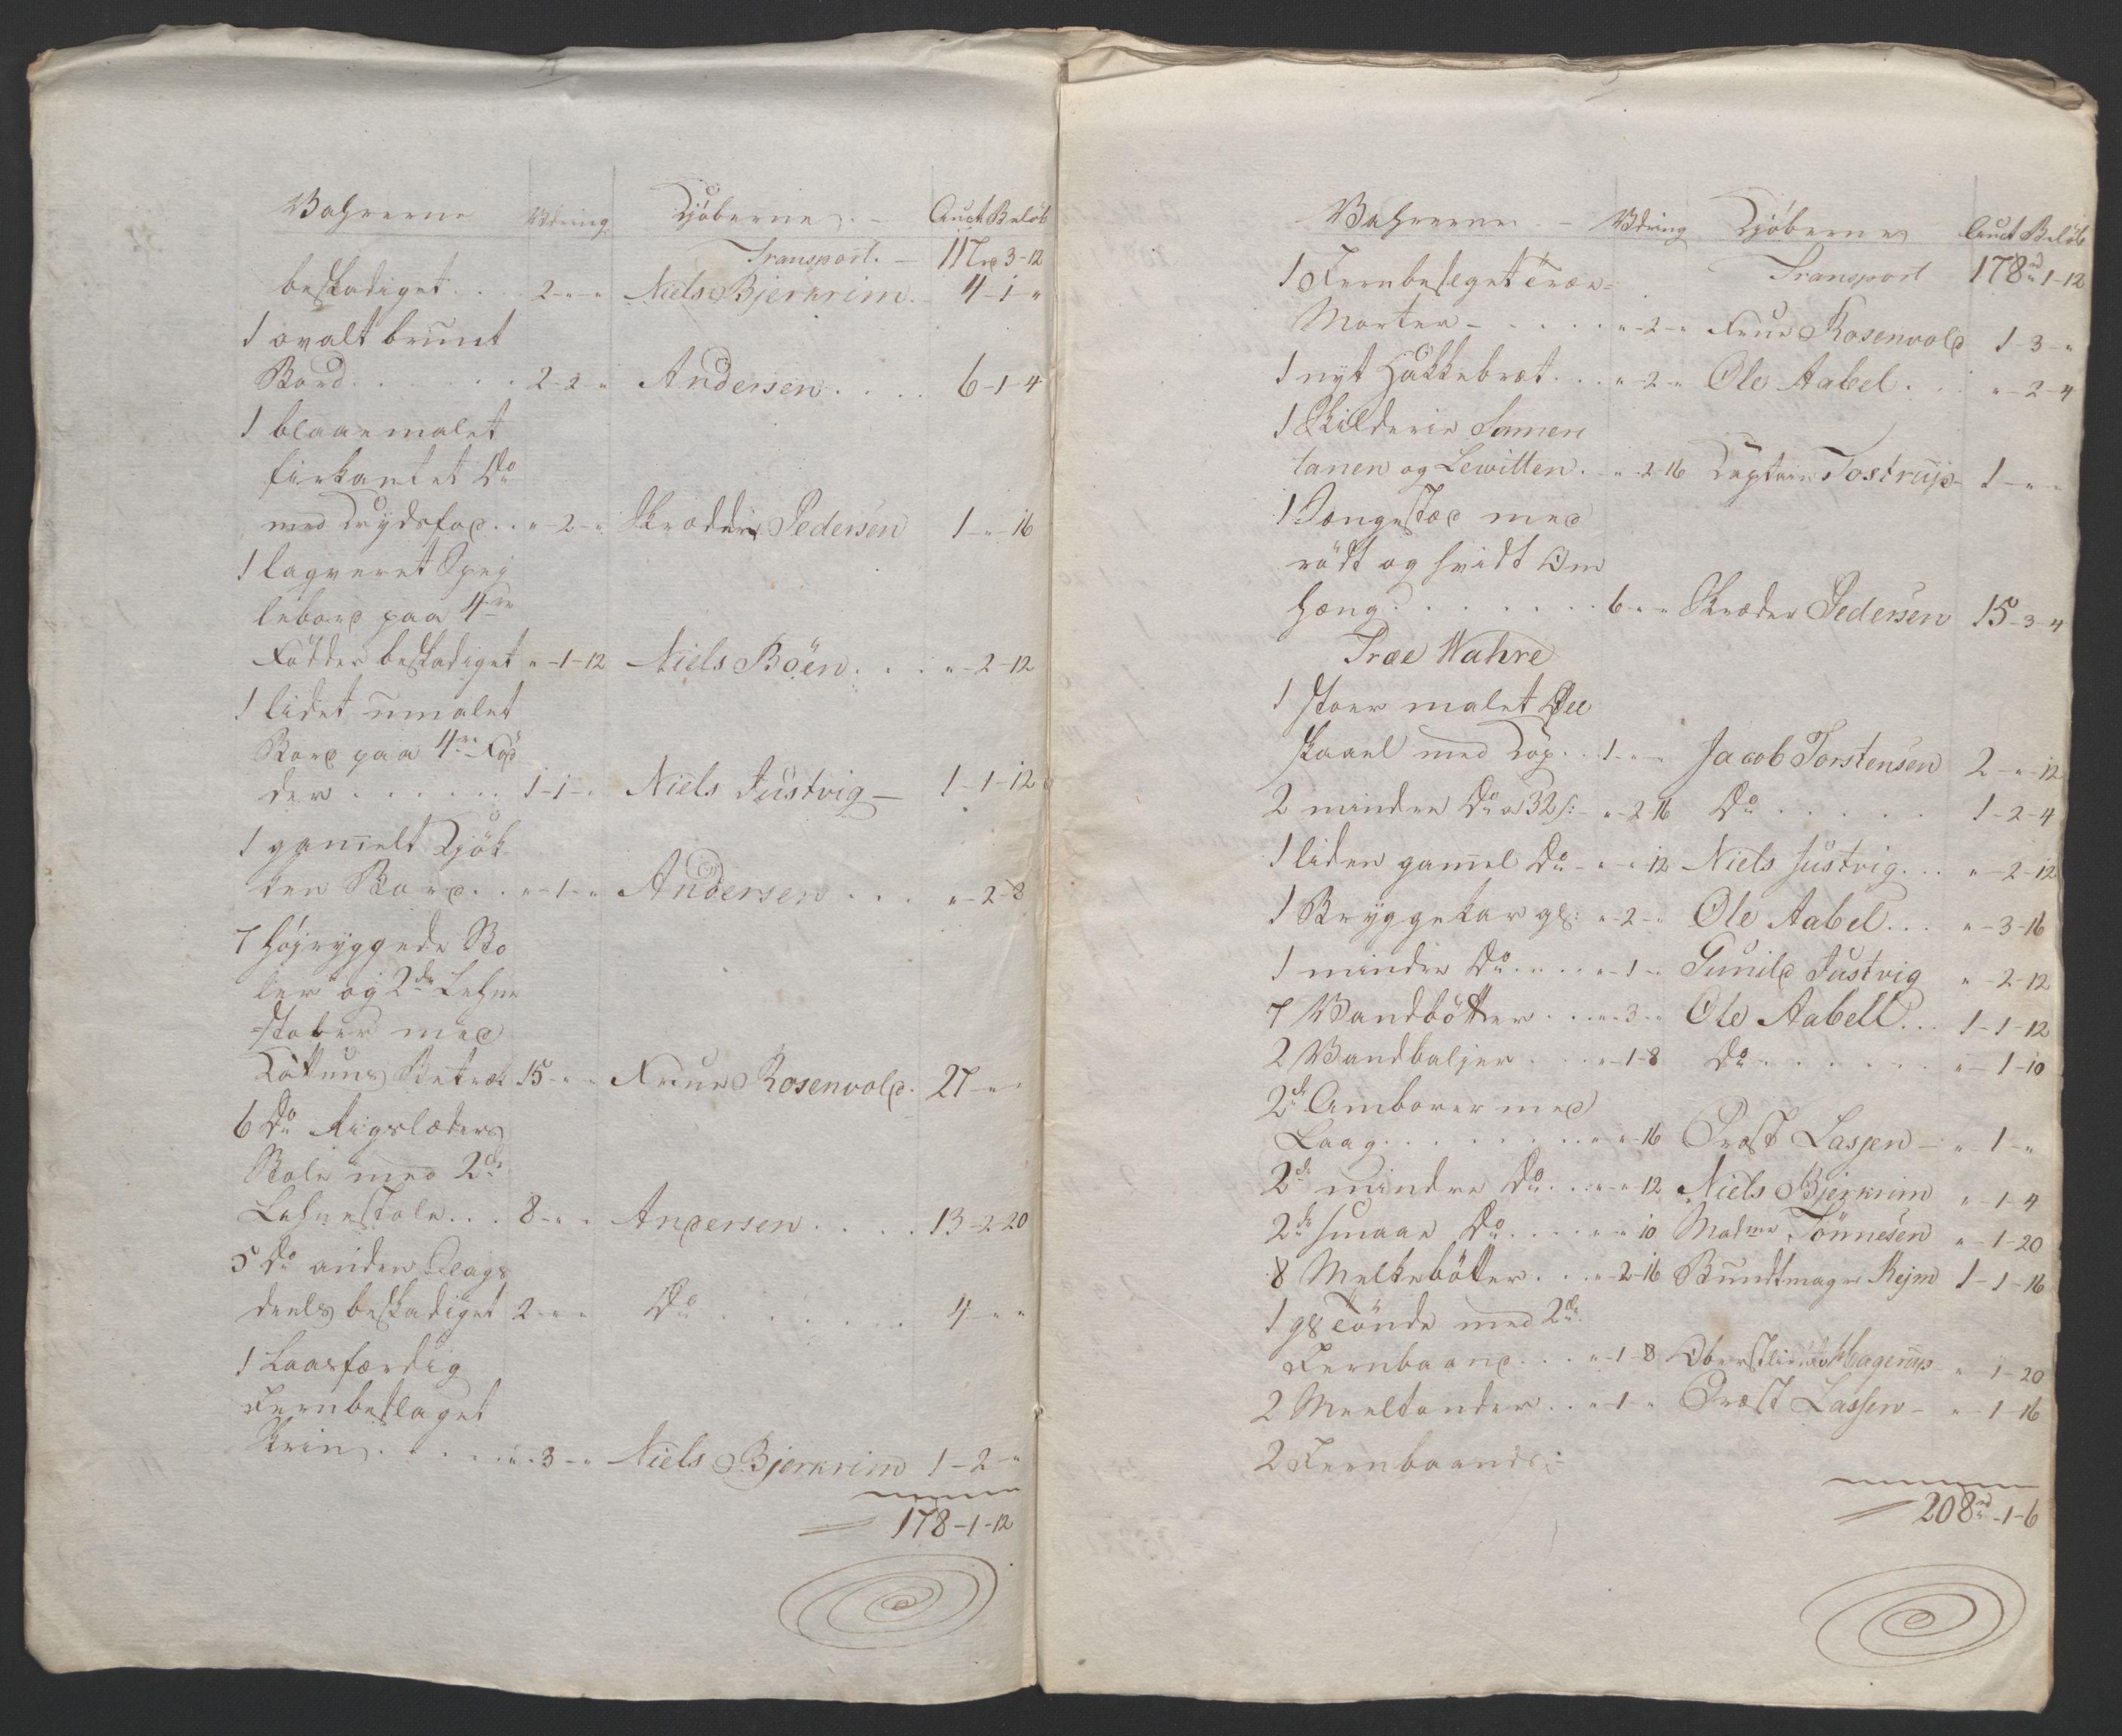 Vahrerne Vdring Kjöberne. - Auct. Belöb
Transport. - 117rd 3-12
beskadiget . . . 2-"-" Niels Bjerkrim. - 4-1-"
1 ovalt brunt
Bord . . . . . . 2-2-" Andersen . . . . 6-1-4
1 blaae malet
firkantet Do
med Krydsfod . . "-2-" Skrædder Pedersen 1-"-16
1 laqveret Spei
lebord paa 4re
Födder beskadiget "-1-12 Niels Böen . . . "-2-12
1 lidet umalet
Bord paa 4re Föd
der . . . . . . 1-1-" Niels Justvig - 1-1-12
1 gamelt Kjök
ken Bord . . "-1-" Andersen . . . "-2-8
7 höjryggede Sto
ler og 2de Lehne
-stoler med
Kattuns Betræk 15-"-" Frue Rosenvold. 27-"-"
6 Do Rigslæders
Stole med 2de
Lehnestole . . . 8-"-" Andersen . . . . 13-2-20
5 Do anden Slags
deels beskadiget 2-"-" Do . . . . . . 4-"-"
1 Laasfærdig
Jernbeslaget
Skrin . . . . . "-3-" Niels Bjerkrim 1-2-"
178-1-12
Vahrerne - Vdring Kjöberne Auct Belöb
Transport 178rd 1-12
1 Jernbeslaget Træe-
Morter - . . . . "-2-" Frue Rosenvold 1-3-"
1 nyt Hakkebræt . . . "-2-" Ole Aabel . . . "-2-4
1 Skilderie Samen
tanen og Lewitten . - "-2-16 Captain Tostrup 1-"-"
1 Sængestæd med
rödt og hvidt Om
hæng . . . . . . . 6-"-" Skræder Pedersen 15-3-4
Træe Wahre
1 stoer malet Öll
skaael med Kop . . 1-"-" Jacob Torstensen 2-"-12
2 mindre Do a 32 s: - "-2-16 Do . . . . . 1-2-4
1 liden gamel Do - "-"-12 Niels Justvig . . . "-2-12
1 Bryggekar gl: "-2-" Ole Aabel . . . "-3-16
1 mindre Do . . . . "-1-" Gunild Justvig "-2-12
7 Vandbötter . . . "-3-" Ole Aabell . . . 1-1-12
2 Vandbaljer . . . "-1-8 Do . . . . . . "-1-10
2de Ambarer med
Laag . . . . . . . . "-"-16 Præst Lassen - "-1-"
2de mindre Do . . . "-"-12 Niels Bjerkrim "-1-4
2de smaae Do . . . . "-"-10 Madme Tönnesen "-1-20
8 Melkebötter . . . "-2-16 Bundtmager Rejm 1-1-16
1 gl Tönde med 2de
Jernbaand . . . "-1-8 Oberstlieut: Hagerup "-1-20
2 Meeltönder . . "-1-" Præst Lassen - "-1-16
2 Jernbaands:-
208rd-1-6